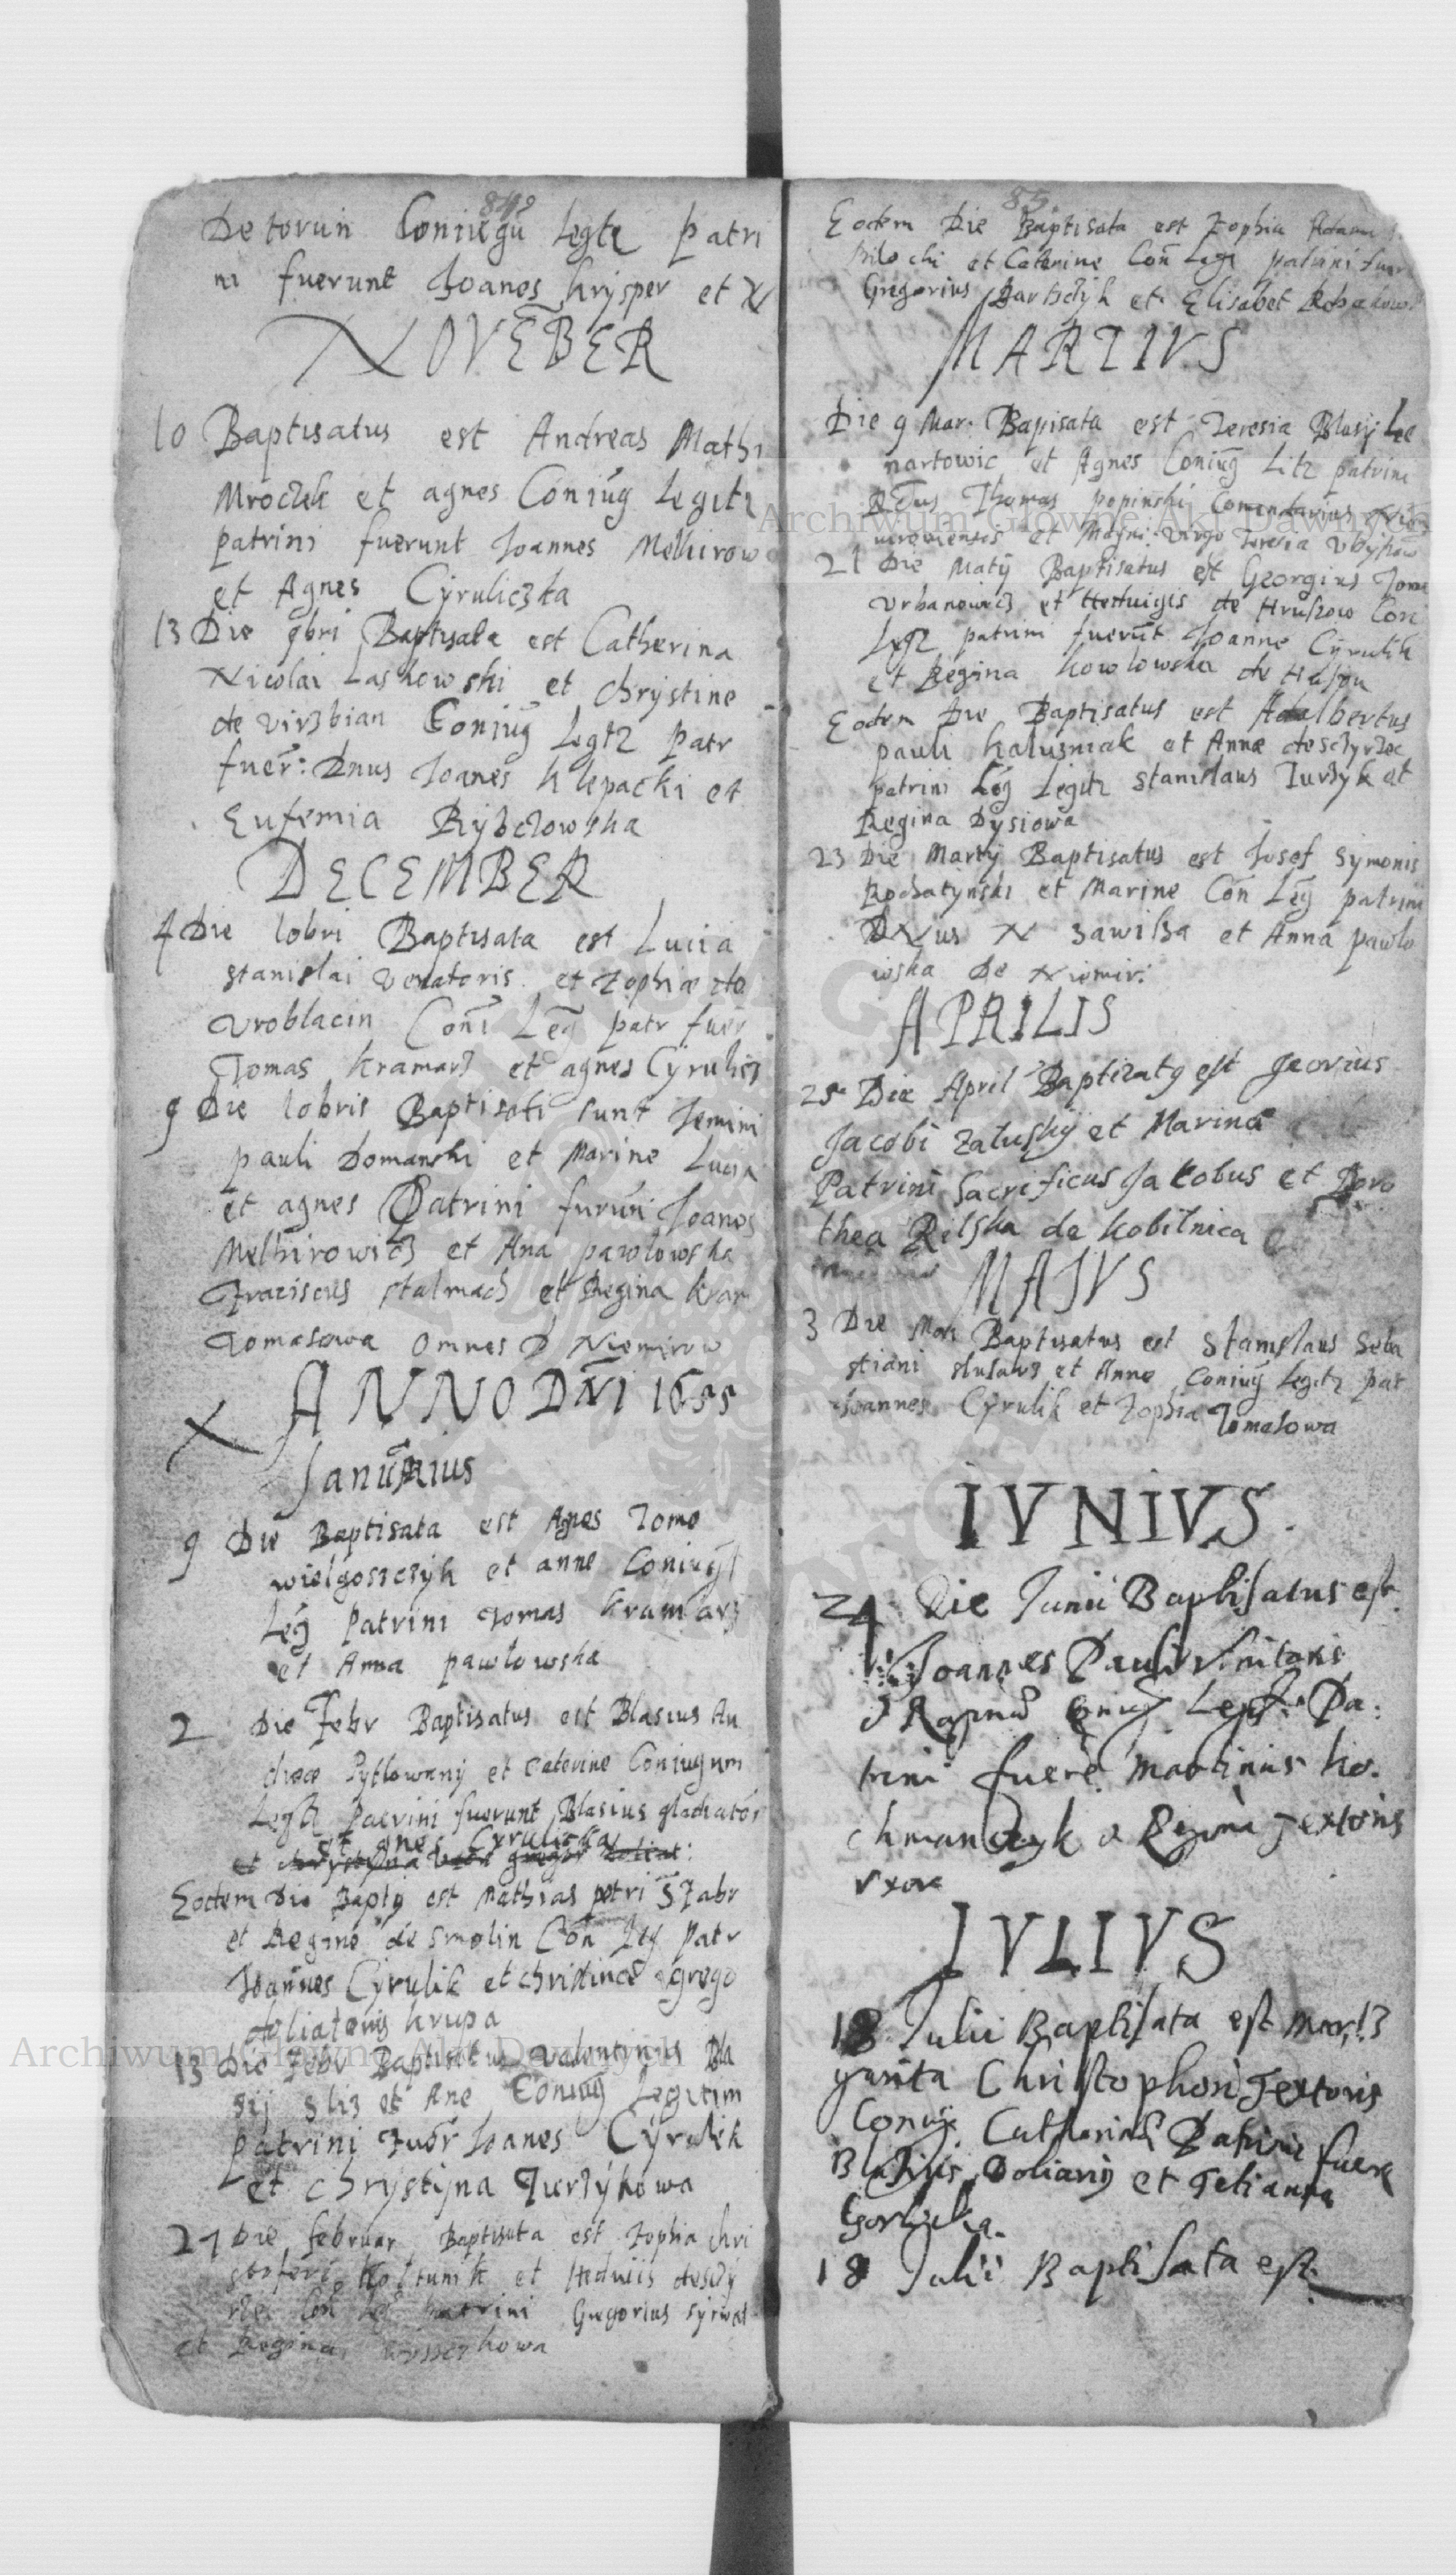 849
De torun Coniugũ Legtę Patri
ni fuerunt Joanes Krysper et N
NOVĒBER
10 Baptisatus est Andreas Mathi
Mroczek et agnes Coniũg Legitz
patrini fuerunt Joannes Melhirow
et Agnes Cyruliczka
13 Die 9bri Baptisata est Catherina
Nicolai Laskowski et Chrystine
de virzbian Coniũg Legtz patr
fuer: Dnus Joanes Klepacki et
Eufemia Rybczowska
DECEMBER
4 Die 10bri Baptisata est Lucia
stanislai venatoris et Zophiæ de
Vroblacin Coni Leg patr fuer
Tomas Kramarz et agnes Cyrulicz
9 Die 10bris Baptisati sunt Jemini
pauli Domanski et Marine Lucia
et agnes Patrini furuñ Joanes
Melhirowicz et Ana pawlowska
Fraciscus stalmach et Regina kram
Tomasowa omnes D Niemirow
ANNO DÑI 1655
Januarius
9 Die Baptisata est Agnes Tome
wielgoszczyk et anne Coniugũ
Leg Patrini Tomas Kramarz
et Anna pawlowska
2 Die Febr Baptisatus est Blasius An
dreæ Pytlowany et Caterine Coniugum
Legtz Patrini fuerunt Blasius gladiator
et agnes Cyruliczka
et chrystyna
Eodem Die Bapty est Mathias petri Szabr
et Regine de Smolin Coñ Leg Patr
Joannes Cyrulik et christinæ grego
doliatoris krupa
13 Die Febr Baptisatus Valentinus Bla
sij Sliz et Ane Coniũg Legitim
patrini Fuer Joanes Cyrulik
et chrystyna Turzykowa
27 Die februar Baptisata est Zophia chri
stoferi et Heduiis
Coñ Leg patrini Gregorius
et Regina
85.
Eodem Die Baptisata est Zophia Adam
et Caterine Coñ Legt patrini fuer
Gregorius Bartczyk et Elisabet
MARTIVS
Die 9 Mar: Bapisata est Teresia Blasij Lee
nartowic et Agnes Coniũg Litz patrini
Rdus Thomas popinski Comendarius Nie
mirowiensis et Magni: Virgo Teresia
21 Die Matij Baptisatus est Georgius Tome
Vrbanowicz et Heduigis de Hruszow Con
Legtz patrini fuerũt Joanne Cyrulik
et Regina kowlowska de
Eodem Die Baptisatus est Adalbertus
pauli kaluzniak et Annæ de sczyrzec
patrini Leg Legitz stanislaus Turzyk et
Regina Dysiowa
23 Die Martij Baptisatus est Josef Symonis
Rochatynski et Marine Coñ Leg patrini
DNus N zawisza et Anna pawlo
wska De Niemir:
APRILIS
25 Die April Baptizatg est Georius
Jacobi Zaluskij et Marina
Patrini Sacrificus Jakobus et Doro
thea Relska de kobilnica
MAJVS
3 Die Maii Baptisatus est Stanislaus Seba
stiani slusarz et Anne Coniug Legitz pat
Joannes Cyrulik et Zophia Tomasowa
IVNIVS.
24 Die Junii Baptisatus est
Joannes Pauli
et Coniug Legit: Pa:
trini fuere Martinus ko:
chmanczyk et Regina Textoris
vxore
IVLIVS
18 Julii Baptisata est Mar!3
garita Christophori Textoris
Coniug Catharinæ Patrini fuere
Blasius Doliarij et Tetianna
Gorliczka.
18 Julii Baptisata est
Archiwum Główne Akt Dawnych
Archiwum Główne Akt Dawnych